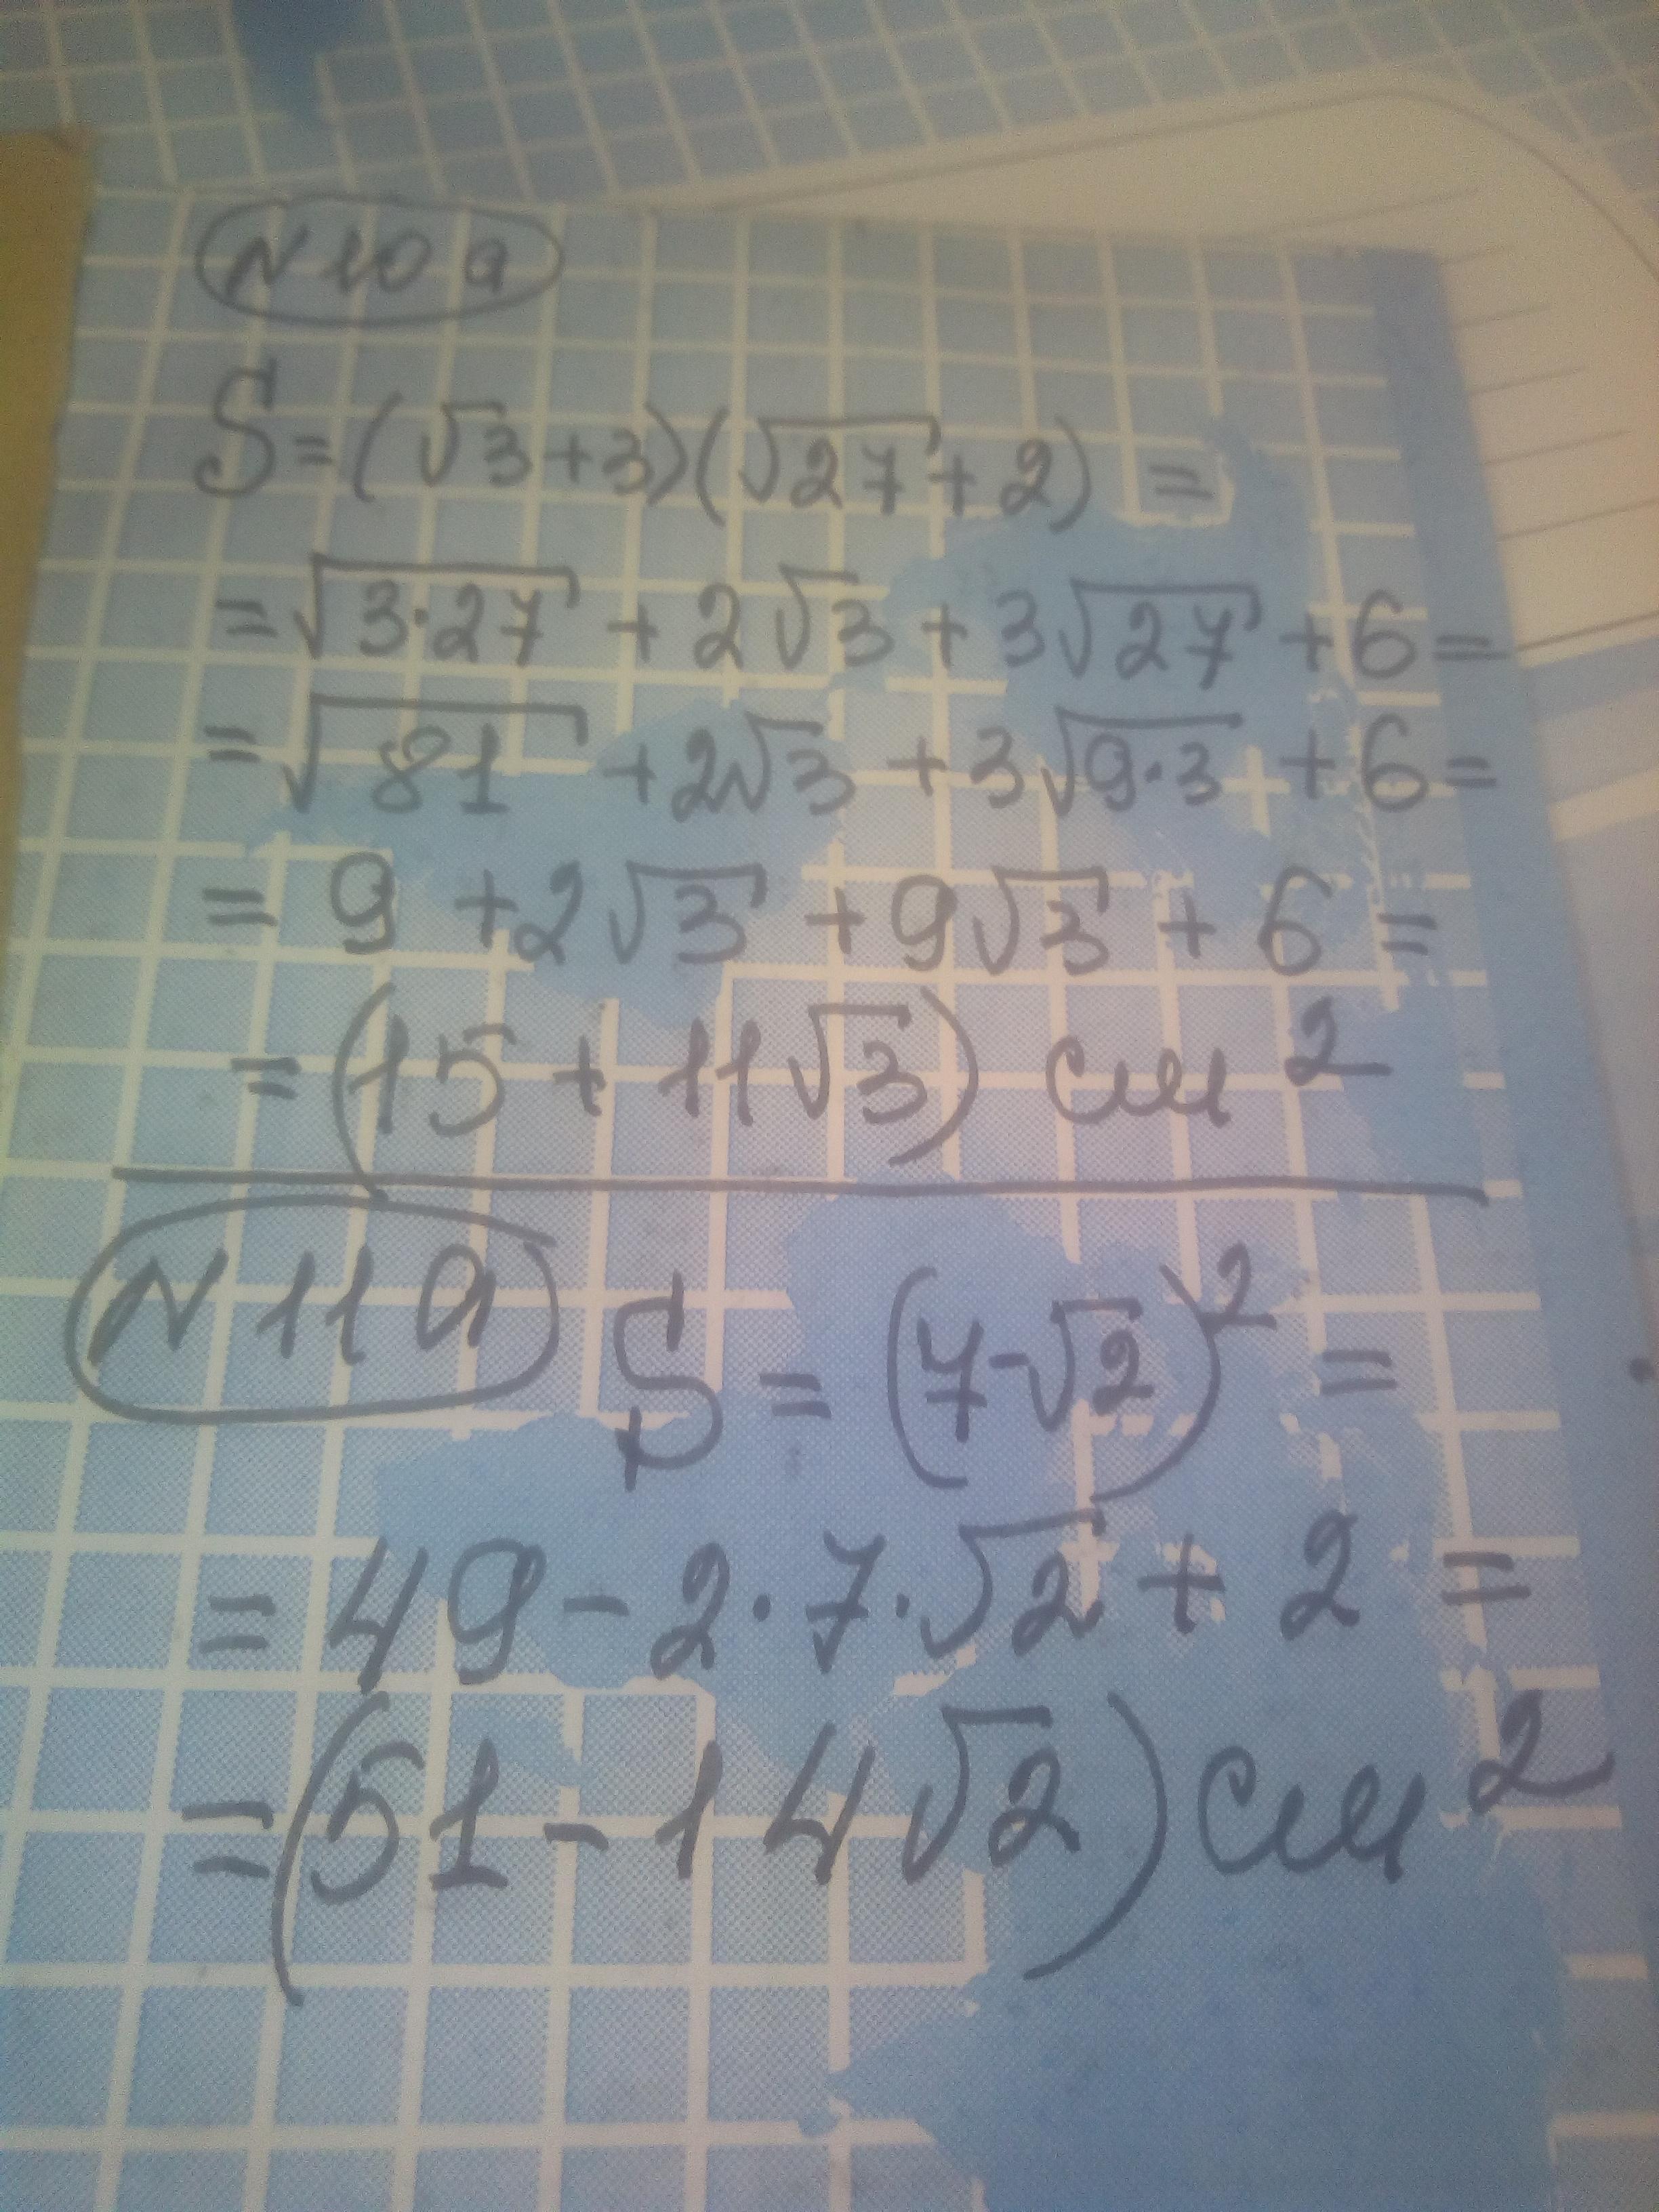 N10a
S=(√3+3)(√27+2)=
=√3·27+2√3+3√27+6=
=√81+2√3+3√9·3+6=
=9+2√3+9√3+6=
=(15+11√3) см²
N11a S=(7-√2)²=
=49-2·7·√2+2=
=(51-14√2) см²